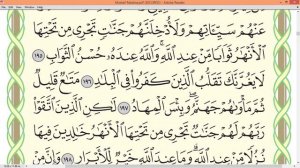 عَنْهُمْ سَيِّـَٔاتِهِمْ وَلَأُدْخِلَنَّهُمْ جَنَّـٰتٍ تَجْرِى مِن تَحْتِهَا
ٱلْأَنْهَـٰرُ ثَوَابًا مِّنْ عِندِ ٱللَّهِ ۗ وَٱللَّهُ عِندَهُۥ حُسْنُ ٱلثَّوَابِ ١٩٥
لَا يَغُرَّنَّكَ تَقَلُّبُ ٱلَّذِينَ كَفَرُوا۟ فِى ٱلْبِلَـٰدِ ١٩٦ مَتَـٰعٌ قَلِيلٌ
ثُمَّ مَأْوَىٰهُمْ جَهَنَّمُ ۚ وَبِئْسَ ٱلْمِهَادُ ١٩٧ لَـٰكِنِ ٱلَّذِينَ ٱتَّقَوْا۟
رَبَّهُمْ لَهُمْ جَنَّـٰتٌ تَجْرِى مِن تَحْتِهَا ٱلْأَنْهَـٰرُ خَـٰلِدِينَ فِيهَا
نُزُلًا مِّنْ عِندِ ٱللَّهِ ۗ وَمَا عِندَ ٱللَّهِ خَيْرٌ لِّلْأَبْرَارِ ١٩٨ وَإِنَّ